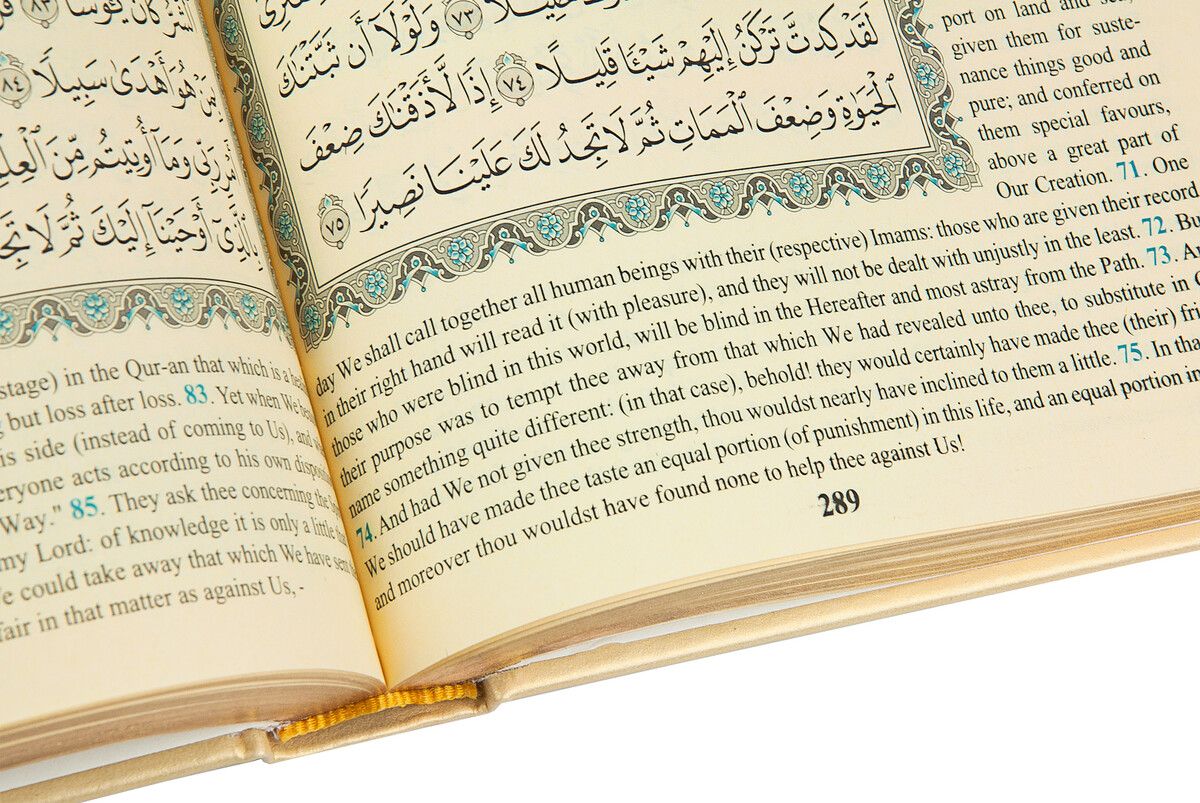 ٧٣ وَلَوْلَآ أَن ثَبَّتْنَٰكَ
لَقَدْ كِدتَّ تَرْكَنُ إِلَيْهِمْ شَيْـًٔا قَلِيلًا ٧٤ إِذًا لَّأَذَقْنَٰكَ ضِعْفَ
ٱلْحَيَوٰةِ وَضِعْفَ ٱلْمَمَاتِ ثُمَّ لَا تَجِدُ لَكَ عَلَيْنَا نَصِيرًا ٧٥
port on land and sea;
given them for suste-
nance things good and
pure; and conferred on
them special favours,
above a great part of
Our Creation. 71. One
day We shall call together all human beings with their (respective) Imams: those who are given their record
in their right hand will read it (with pleasure), and they will not be dealt with unjustly in the least. 72. But
those who were blind in this world, will be blind in the Hereafter and most astray from the Path. 73. And
their purpose was to tempt thee away from that which We had revealed unto thee, to substitute in
name something quite different: (in that case), behold! they would certainly have made thee (their)
74. And had We not given thee strength, thou wouldst nearly have inclined to them a little. 75. In
We should have made thee taste an equal portion (of punishment) in this life, and an equal portion in
and moreover thou wouldst have found none to help thee against Us!
289
ٱلشَّرُّ كَانَ يَـُٔوسًا ٨٣
مَنْ هُوَ أَهْدَىٰ سَبِيلًا ٨٤
رَبِّى وَمَآ أُوتِيتُم مِّنَ ٱلْعِلْمِ
بِٱلَّذِىٓ أَوْحَيْنَآ إِلَيْكَ ثُمَّ لَا
stage) in the Qur-an that which is a
but loss after loss. 83. Yet when We
side (instead of coming to Us), and
acts according to his own
Way." 85. They ask thee concerning the
my Lord: of knowledge it is only a little
could take away that which We have sent
in that matter as against Us,-